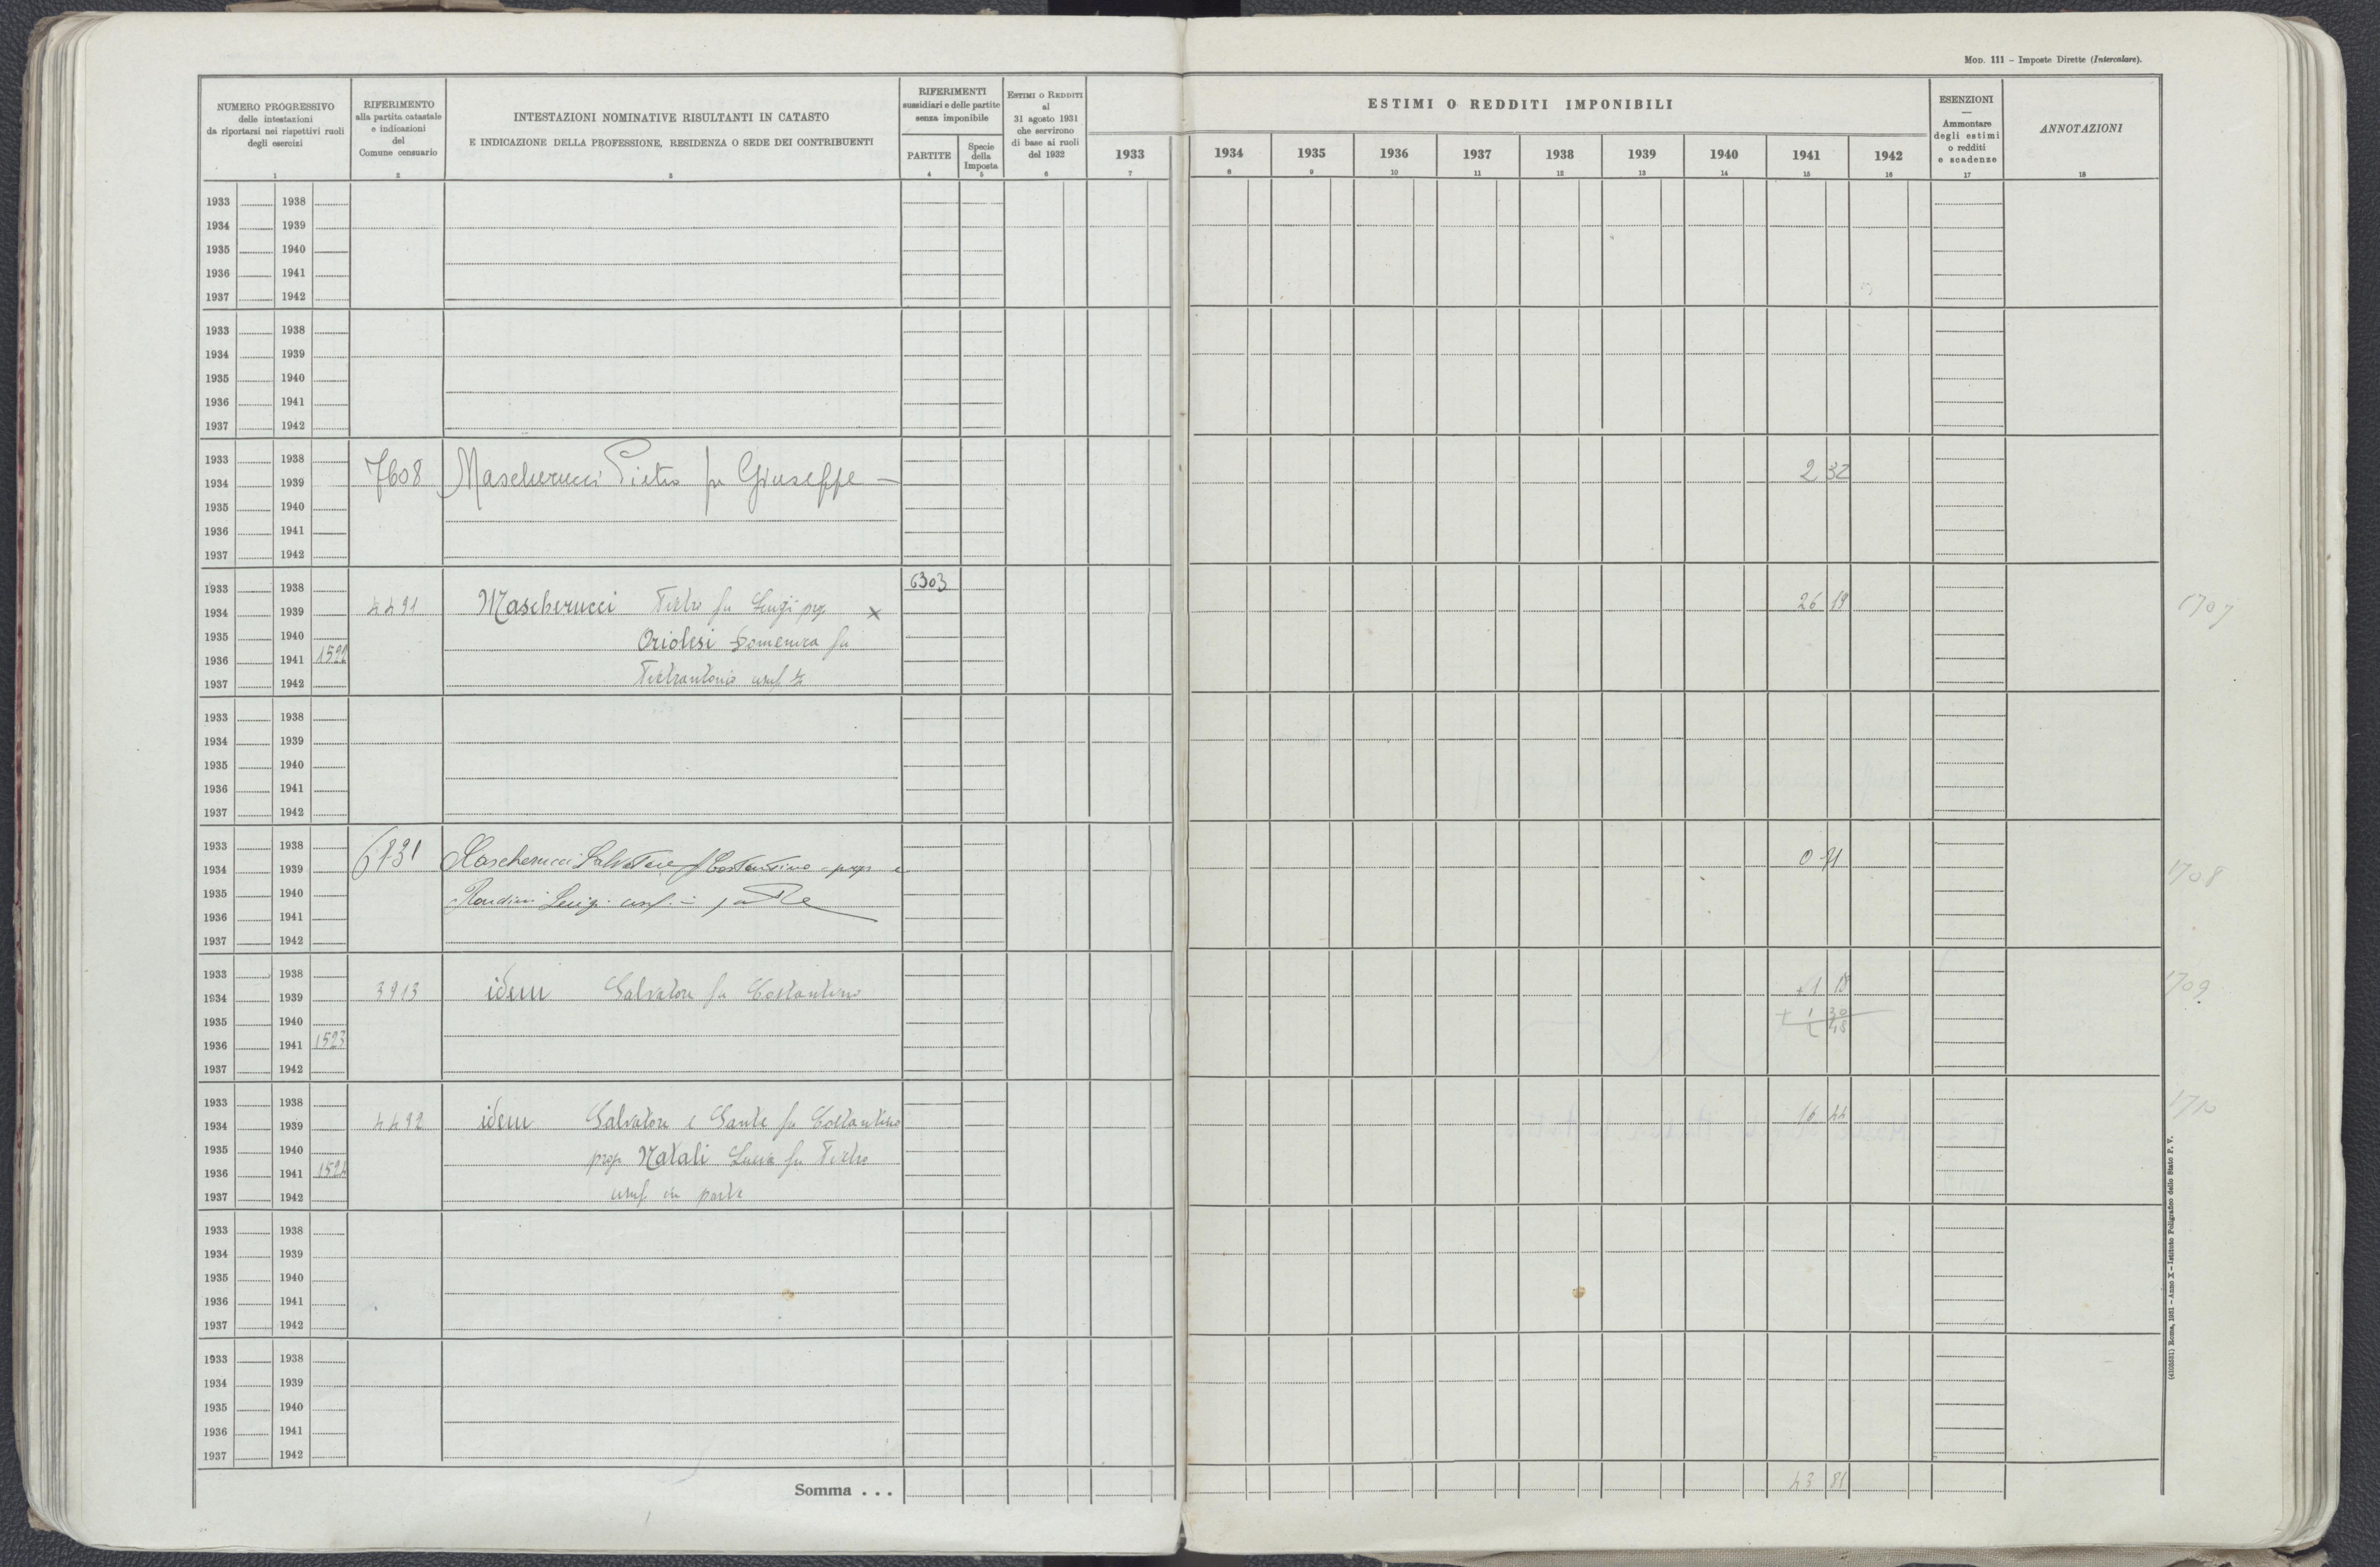 MOD. 111 – Imposte Dirette (Intercalare).
NUMERO PROGRESSIVO
delle intestazioni
da riportarsi nei rispettivi ruoli
degli esercizi
RIFERIMENTO
alla partita catastale
e indicazioni
del
Comune censuario
INTESTAZIONI NOMINATIVE RISULTANTI IN CATASTO
E INDICAZIONE DELLA PROFESSIONE, RESIDENZA O SEDE DEI CONTRIBUENTI
RIFERIMENTI
sussidiari e delle partite
senza imponibile
PARTITE
Specie
della
Imposta
ESTIMI O REDDITI
al
31 agosto 1931
che servirono
di base ai ruoli
del 1932
ESTIMI O REDDITI IMPONIBILI
1933 1934 1935 1936 1937 1938 1939 1940 1941 1942
ESENZIONI
—
Ammontare
degli estimi
o redditi
e scadenze
ANNOTAZIONI
1 2 3 4 5 6 7 8 9 10 11 12 13 14 15 16 17 18
1933 1938
1934 1939
1935 1940
1936 1941
1937 1942
1933 1938
1934 1939
1935 1940
1936 1941
1937 1942
1933 1938
1934 1939 7608 Mascherucci Pietro fu Giuseppe — 2 32
1935 1940
1936 1941
1937 1942
1933 1938 6303
1934 1939 4491 Mascherucci Pietro fu Luigi prop x 26 19 1707
1935 1940 Oriolesi Domenica fu
1936 1941 1522
1937 1942 Pietrantonio usuf
1933 1938
1934 1939
1935 1940
1936 1941
1937 1942
1933 1938
1934 1939 Mascherucci Salvatore f Costantino - prop e 0 71 1708
1935 1940 Rondini Luigi usuf. in parte
1936 1941
1937 1942
1933 1938
1934 1939 3913 idem Salvatore fu Costantino + 1 18 1709
1935 1940 + 1 30
1936 1941 1523
1937 1942
1933 1938
1934 1939 4492 idem Salvatore e Sante fu Costantino 16 44 1710
1935 1940 prop Natali Lucia fu Pietro
1936 1941 1524
1937 1942 usuf. in parte
1933 1938
1934 1939
1935 1940
1936 1941
1937 1942
1933 1938
1934 1939
1935 1940
1936 1941
1937 1942
Somma . . . 43 81
Roma, 1931 – Anno X – Istituto Poligrafico dello Stato P. V.